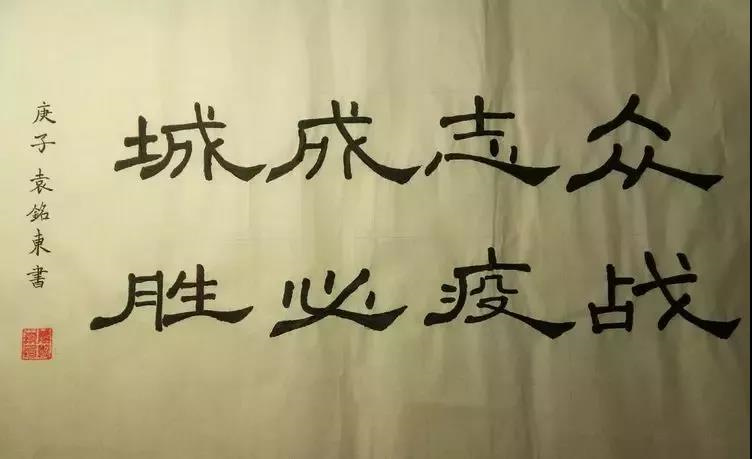 众志成城
战疫必胜
庚子袁銘東書